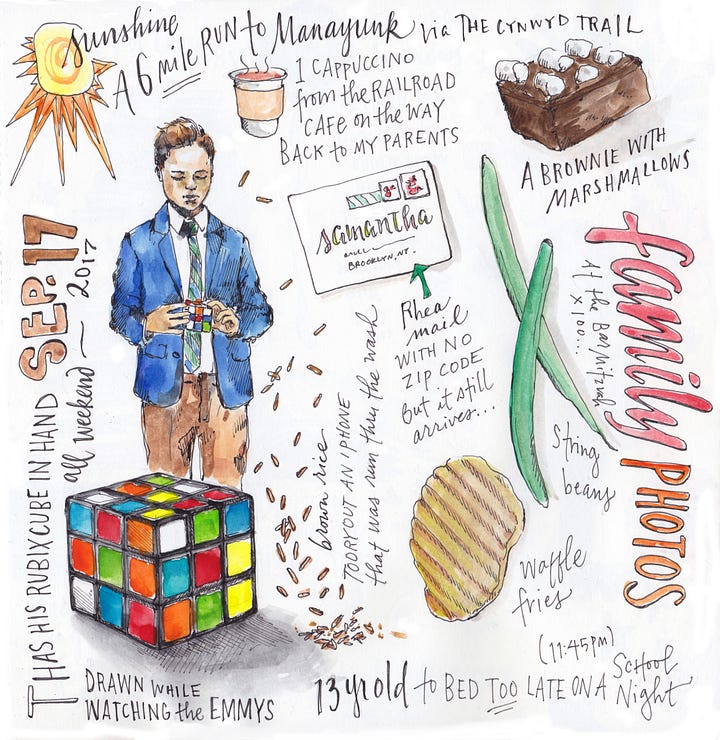 sunshine
A 6 mile RUN to Manayunk via THE CYNWYD TRAIL
1 CAPPUCCINO
from the RAILROAD
CAFE on the WAY
BACK to MY PARENTS
A BROWNIE WITH
MARSHMALLOWS
SEP. 17
2017
samantha
BROOKLYN, NY.
Rhea
mail
WITH NO
ZIP CODE
But it still
arrives...
family
PHOTOS
At the Bar Mitzvah
x 100...
String
beans
waffle
fries
brown rice
TO DRY OUT AN IPHONE
that was run thru the wash
T HAS HIS RUBIX CUBE IN HAND
all weekend
DRAWN WHILE
WATCHING the EMMYS
13 yr old to BED TOO LATE ON A School Night
(11:45PM)